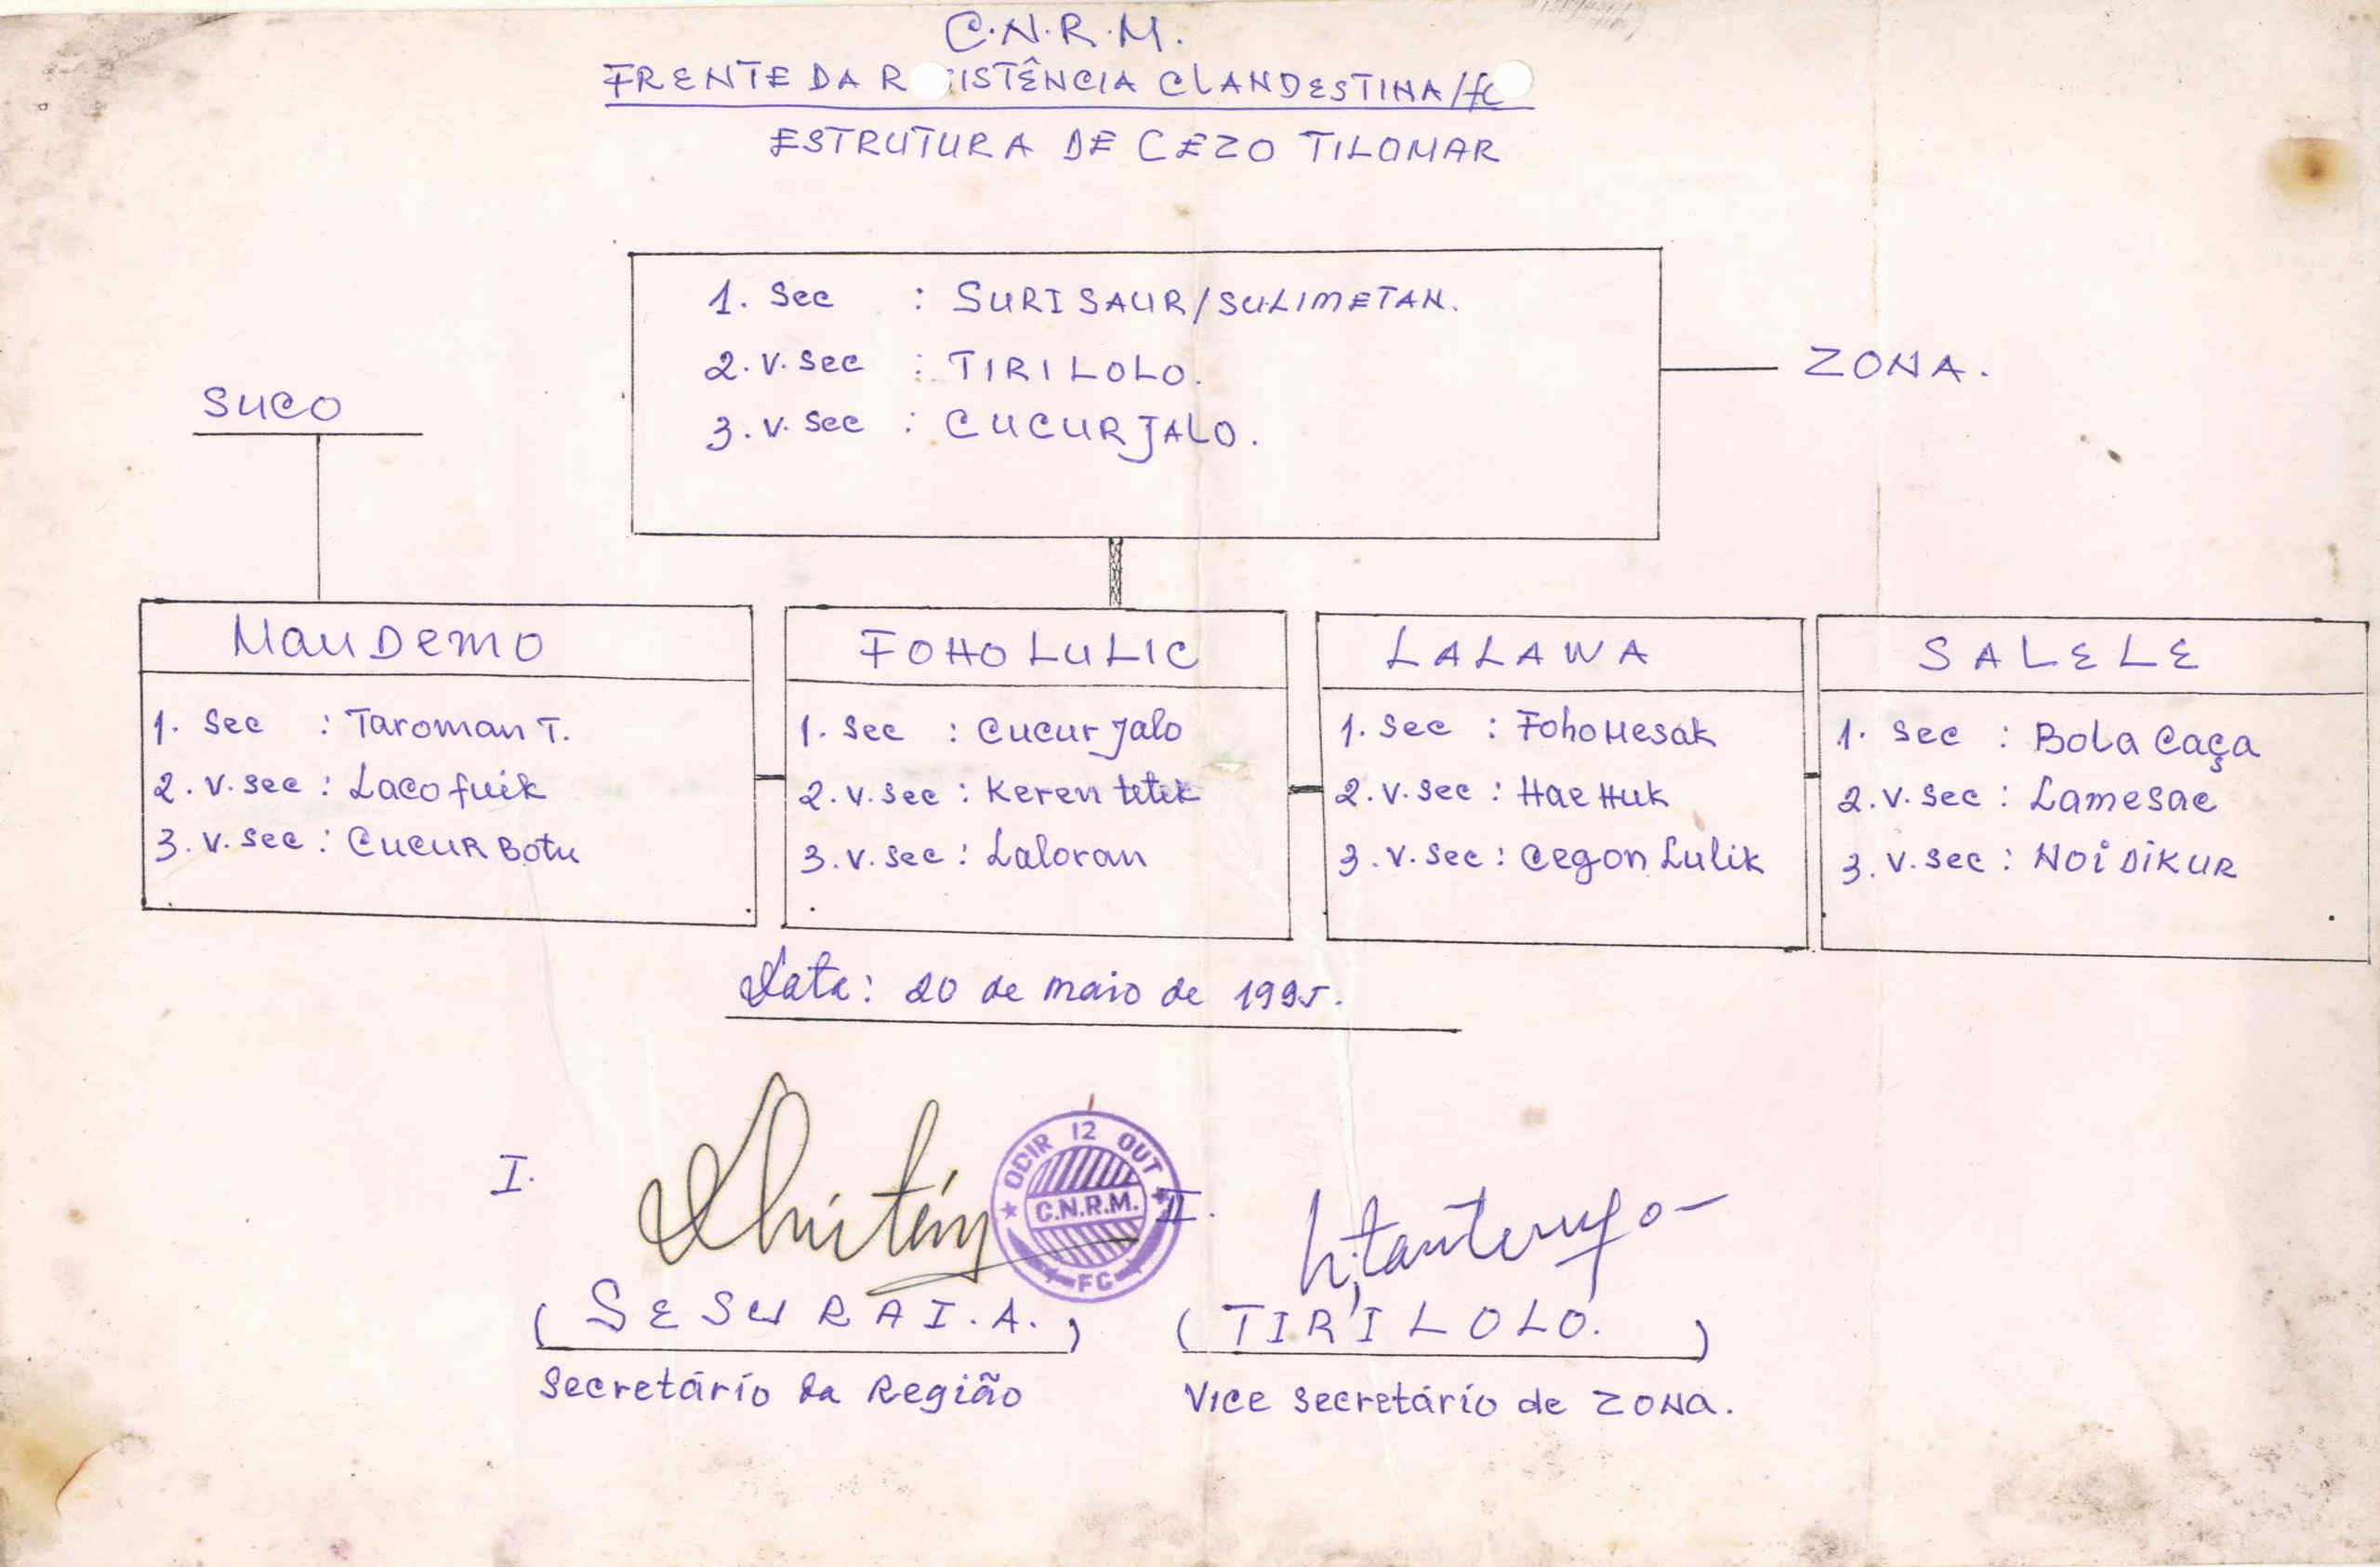 C.N.R.M.
FRENTE DA R ISTÊNCIA CLANDESTINA/fc
ESTRUTURA DE CEZO TILOMAR
1. Sec : SURI SAUR/SULIMETAN.
2. V. Sec : TIRI LOLO.
3. V. Sec : CUCUR JALO.
ZONA.
SUCO
MauDemo
1. Sec : Taroman T.
2. V. Sec : Laco fuik
3. V. Sec : CUCUR Botu
FOHO LULIC
1. Sec : Cucur Jalo
2. V. Sec : Keren tetek
3. V. Sec : Laloran
LALAWA
1. Sec : Foho Mesak
2. V. Sec : Hae Huk
3. V. Sec : Cegon Lulik
SALELE
1. Sec : Bola Caça
2. V. Sec : Lamesac
3. V. Sec : NOi DiKUR
Data: 20 de maio de 1995.
I.
ODIR 12 OUT
C.N.R.M.
FC
II.
( SESURAI.A. )
Secretário da Região
( TIRI LOLO. )
Vice secretário de ZONA.